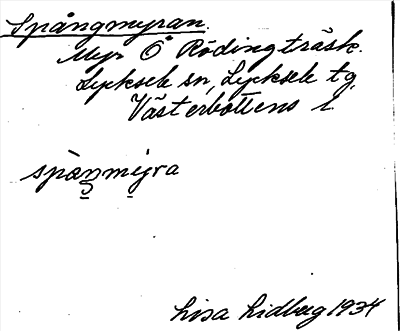 Spångmyran.
Myr Ö Rödingträsk.
Lycksele sn, Lycksele tg,
Västerbottens l.
spàŋmy̆ra
Lisa Lidberg 1934